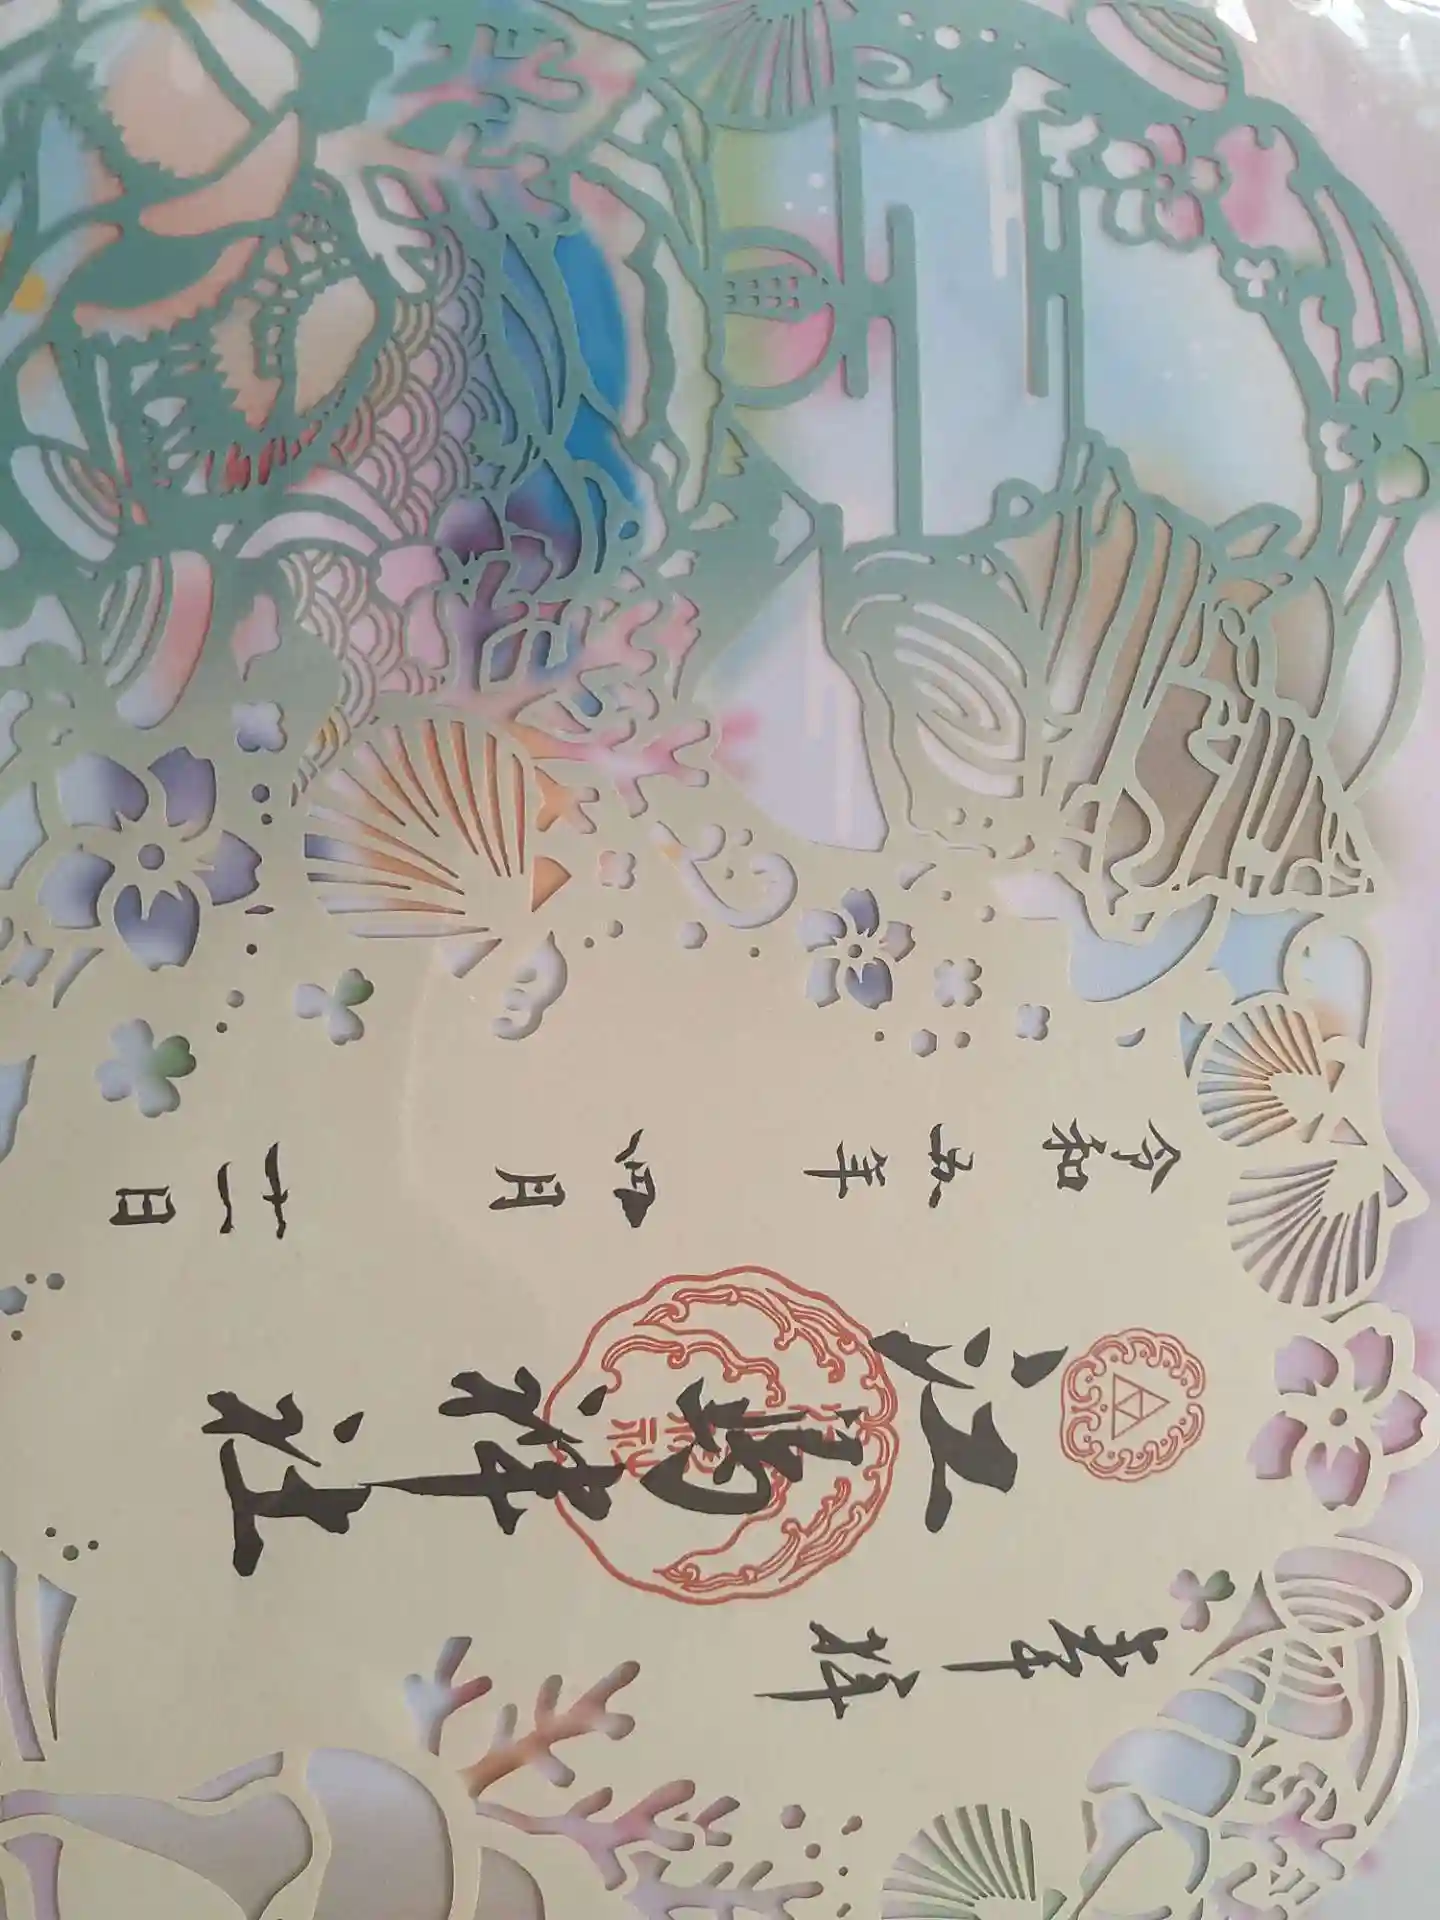 奉拝
江島神社
令和五年四月廿一日